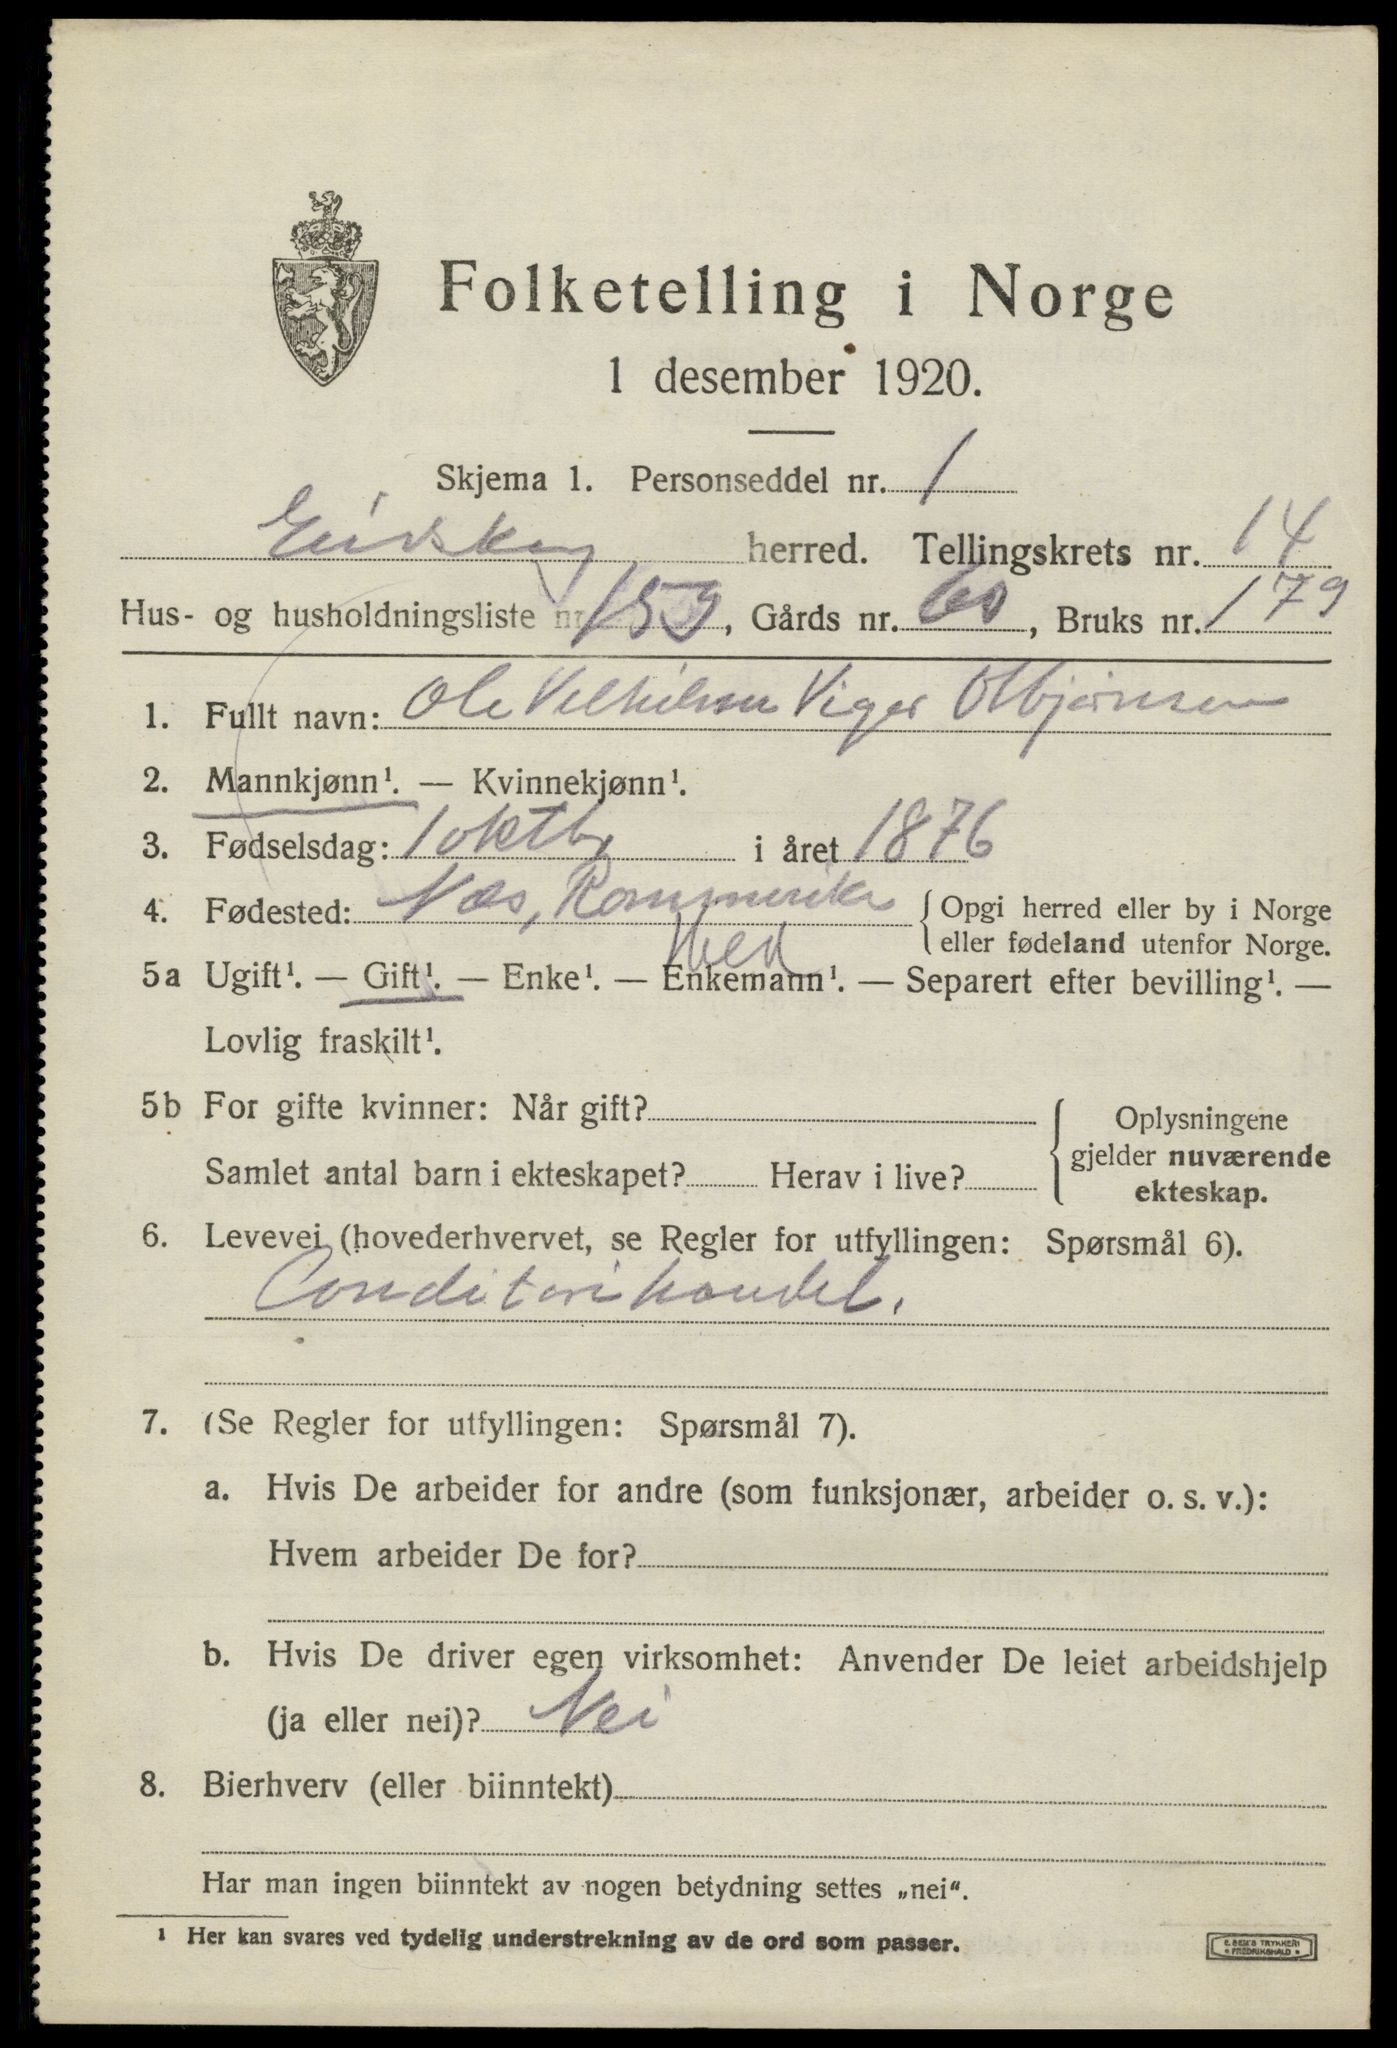 Folketelling i Norge
1 desember 1920.
Skjema 1. Personseddel nr. 1
Eidskog herred. Tellingskrets nr. 14
Hus- og husholdningsliste nr. 159, Gårds nr. 60, Bruks nr. 179
1. Fullt navn: Ole Vilhelm Viger Olbjørnsen
2. Mannkjønn¹. — Kvinnekjønn¹.
3. Fødselsdag: 1 oktbr i året 1876
4. Fødested: Næs, Rommerike { Opgi herred eller by i Norge
{ eller fødeland utenfor Norge.
5a Ugift¹. — Gift¹. — Enke¹. — Enkemann¹. — Separert efter bevilling¹. —
Lovlig fraskilt¹.
5b For gifte kvinner: Når gift?
Samlet antal barn i ekteskapet? Herav i live?
Oplysningene
gjelder nuværende
ekteskap.
6. Levevei (hovederhvervet, se Regler for utfyllingen: Spørsmål 6).
Conditori handel.
7. (Se Regler for utfyllingen: Spørsmål 7).
a. Hvis De arbeider for andre (som funksjonær, arbeider o. s. v.):
Hvem arbeider De for?
b. Hvis De driver egen virksomhet: Anvender De leiet arbeidshjelp
(ja eller nei)? Nei
8. Bierhverv (eller biinntekt)
Har man ingen biinntekt av nogen betydning settes „nei".
¹ Her kan svares ved tydelig understrekning av de ord som passer.
E. SEM'S TRYKKERI
• FREDRIKSHALD •